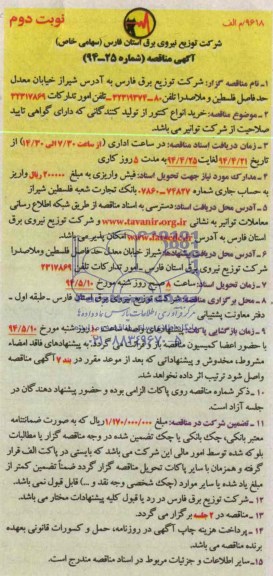 ۹۶۱۸/م الف
نوبت دوم
شرکت توزیع نیروی برق استان فارس (سهامی خاص)
آگهی مناقصه (شماره ۲۵-۹۴)
۱- نام مناقصه گزار: شرکت توزیع برق فارس به آدرس شیراز خیابان معدل
حد فاصل فلسطین و ملاصدرا تلفن ۸۰-۳۲۳۱۹۳۷۲ تلفن امور تدارکات ۳۲۳۱۷۸۶۹
۲- موضوع مناقصه: خرید انواع کنتور از تولید کنندگانی که دارای گواهی تایید
صلاحیت از شرکت توانیر می باشند.
۳- زمان دریافت اسناد مناقصه: در ساعت اداری (از ساعت ۷/۳۰ الی ۱۴/۳۰) از
تاریخ ۹۴/۴/۲۱ لغایت ۹۴/۴/۲۵ به مدت ۵ روز کاری
۴- مدارک مورد نیاز جهت تحویل اسناد: فیش واریزی به مبلغ ۲۰۰۰۰۰ ریال واریز
به حساب جاری شماره ۷۲۸۲۷-۷۸۶۰ بانک تجارت شعبه فلسطین شیراز
۵- آدرس محل دریافت اسناد: دسترسی به اسناد مناقصه از طریق شبکه اطلاع رسانی
معاملات توانیر به نشانی www.tavanir.org.ir و شرکت توزیع نیروی برق
استان فارس به آدرس امکان پذیر می باشد.
۶- آدرس محل دریافت پیشنهادها: شیراز خیابان معدل حد فاصل فلسطین و ملاصدرا
شرکت توزیع برق استان فارس - امور تدارکات تلفن ۳۲۳۱۷۸۶۹
۷- زمان تحویل اسناد: ساعت ۸ صبح روز شنبه مورخ ۹۴/۵/۱۰
۸- محل برگزاری مناقصه: شرکت توزیع نیروی برق استان فارس - طبقه اول -
دفتر معاونت پشتیبانی
۹- زمان بازگشایی پاکات پیشنهادهای واصله: ساعت ۱۰ روز شنبه مورخ ۹۴/۵/۱۰
با حضور اعضا کمیسیون مناقصه به پیشنهادهای فاقد امضاء
مشروط، مخدوش و پیشنهاداتی که بعد از موعد مقرر در بند ۷ آگهی مناقصه
واصل شود ترتیب اثر داده نخواهد شد.
۱۰- ذکر شماره مناقصه روی پاکات الزامی بوده و حضور پیشنهاد دهندگان در
جلسه آزاد است.
۱۱- تضمین شرکت در مناقصه: مبلغ ۱/۱۷۰/۰۰۰/۰۰۰ ریال که به صورت ضمانتنامه
معتبر بانکی، چک بانکی یا چک تضمین شده در وجه مناقصه گزار یا مطالبات
بلوکه شده توسط امور مالی این شرکت می باشد که بایستی در پاکت الف قرار
گرفته و همزمان با سایر پاکات تحویل مناقصه گزار گردد ضمناً تضمین کمتر از
مبلغ یاد شده یا سایر موارد (چک شخصی وجه نقد و ...) قابل قبول نمی باشد.
۱۲- شرکت توزیع برق فارس در رد یا قبول کلیه پیشنهادات مختار می باشد.
۱۳- مناقصه در ۲ جلسه برگزار می گردد.
۱۴- پرداخت هزینه چاپ آگهی در روزنامه، حمل و کسورات قانونی بعهده
برنده مناقصه می باشد.
۱۵- سایر اطلاعات و جزئیات مربوط در اسناد مناقصه مندرج است.